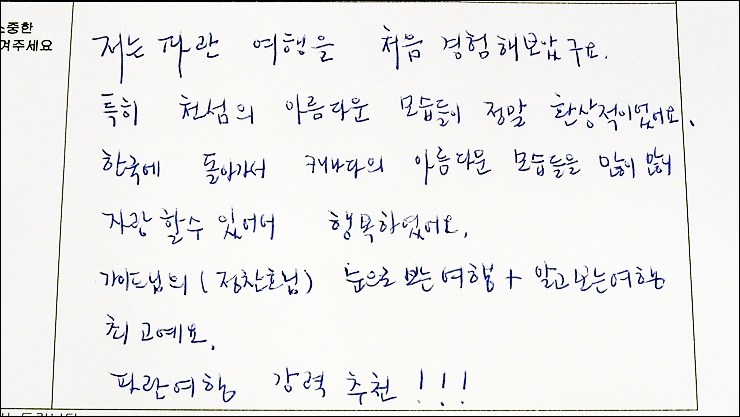 소중한
겨주세요
저는 파란 여행을 처음 경험해보았구요.
특히 천섬의 아름다운 모습들이 정말 환상적이었어요.
한국에 돌아가서 캐나다의 아름다운 모습들을 많이 많이
자랑 할수 있어서 행복하였어요.
가이드님의 (정찬호님) 눈으로 보는여행 + 알고보는여행
최고예요.
파란여행 강력 추천 !!!